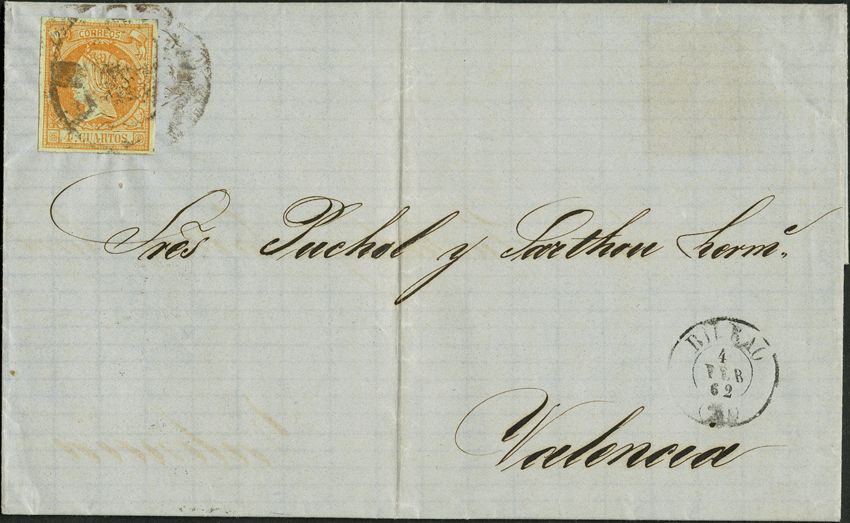 CORREOS
4 CUARTOS.
Sres Puchol y Sarthou herms.
BILBAO
4
FEB
62
Valencia